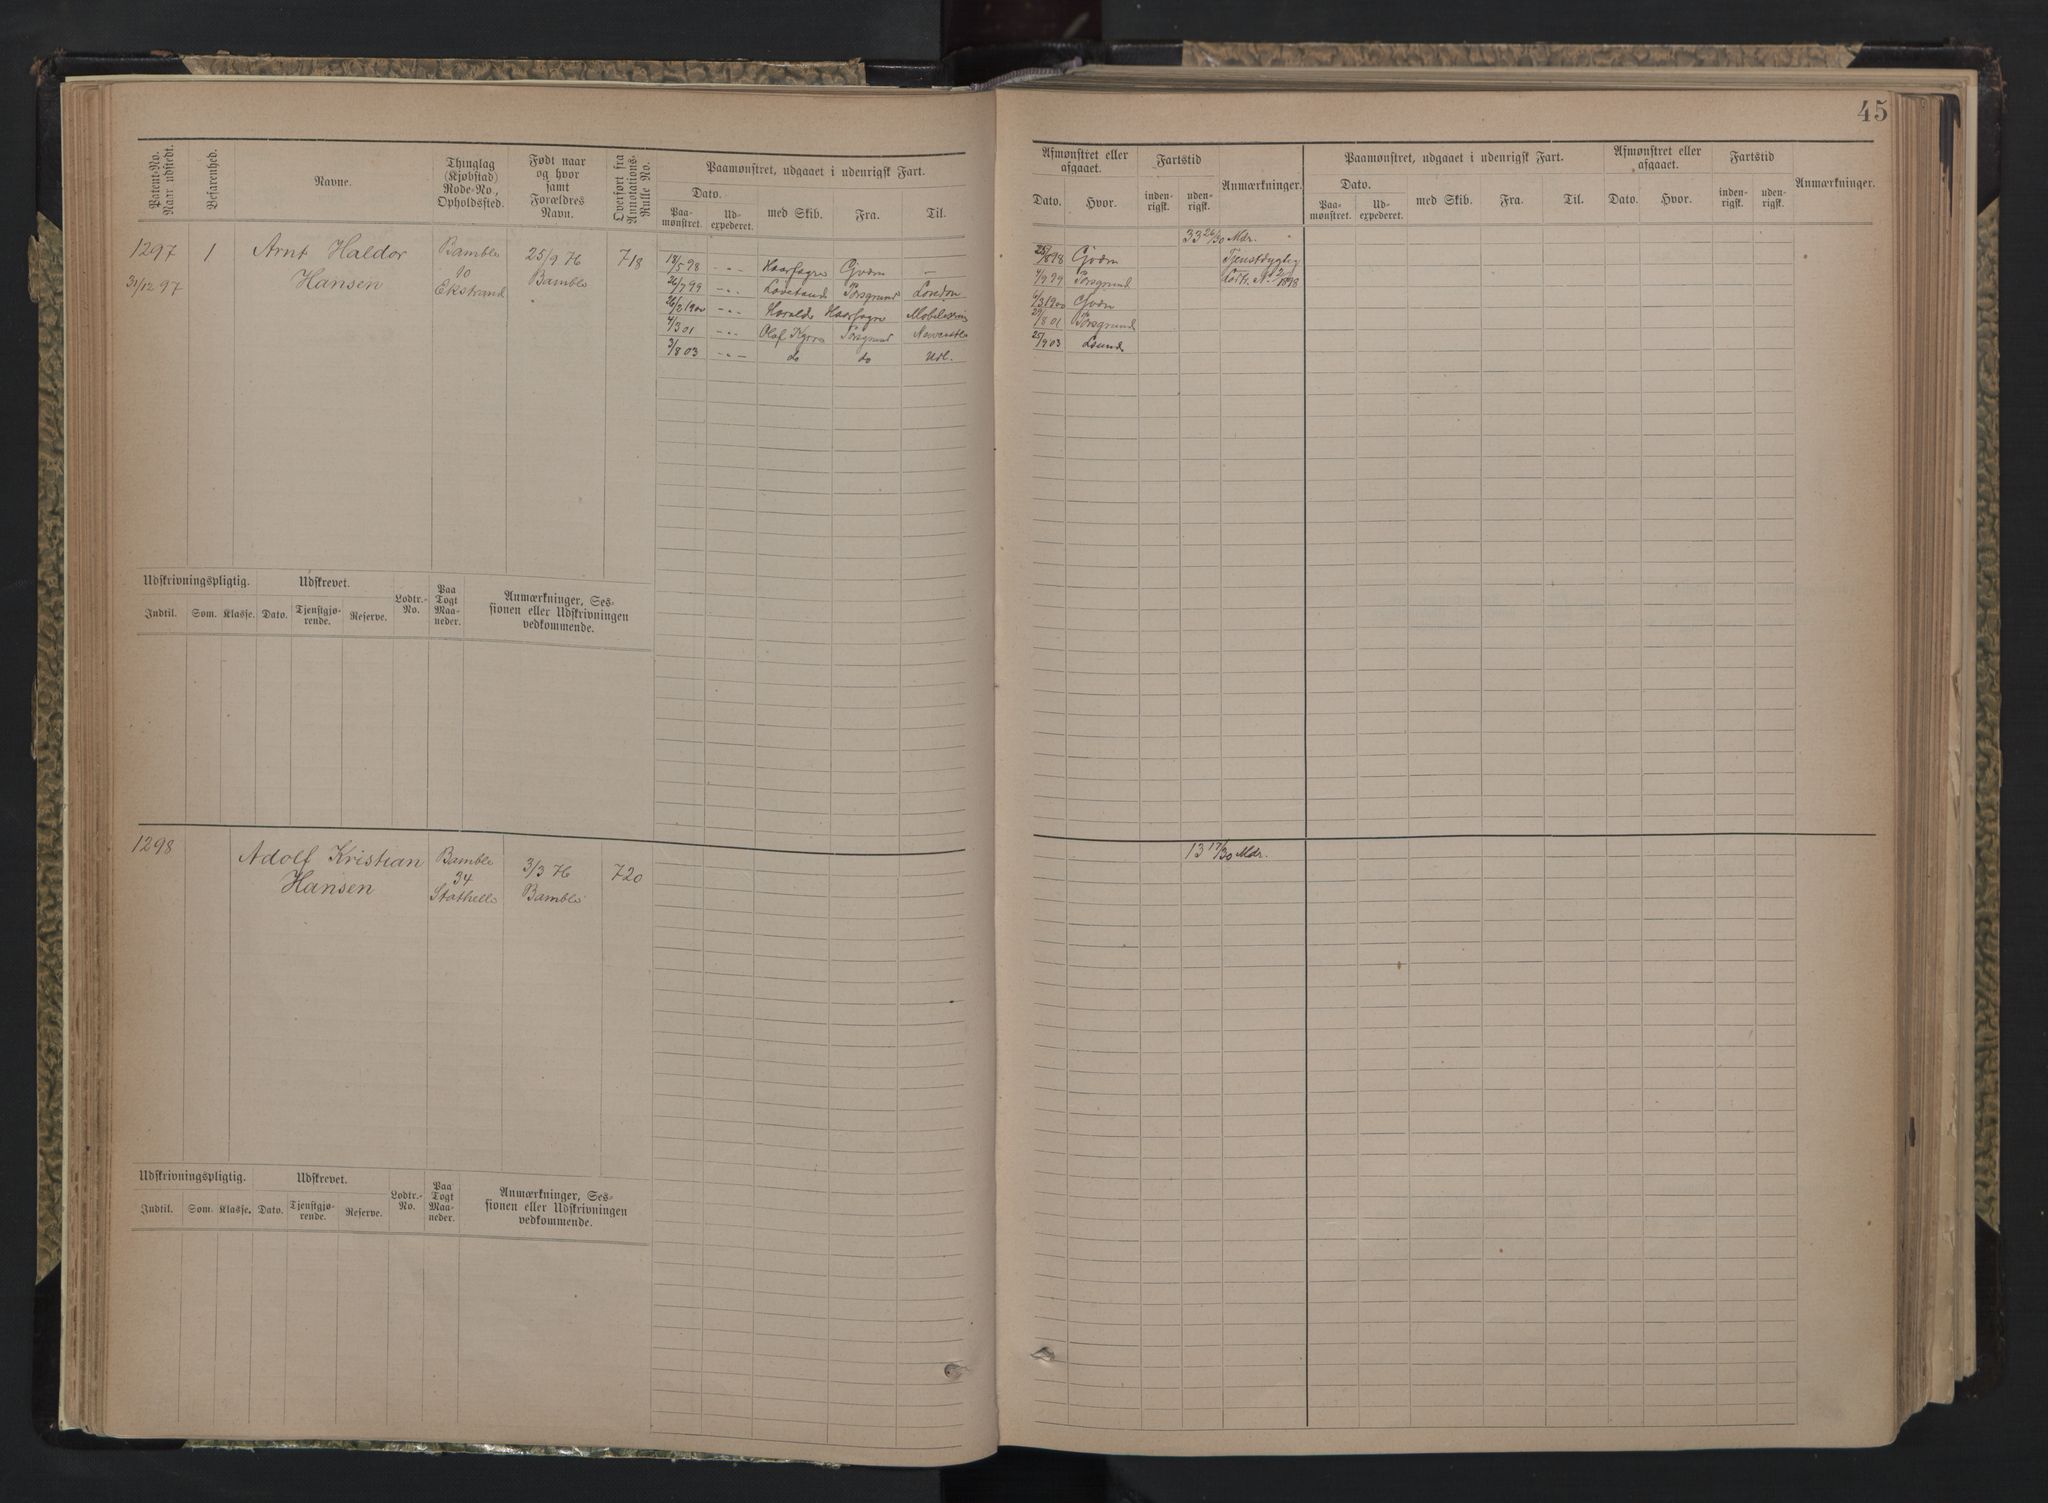 45
Patent-No. Naar udstedt.
Befarenhed.
Navne.
Thinglag (Kjøbstad) Rode-No., Opholdssted.
Født naar og hvor samt Forældres Navn.
Overført fra Annotations-Rulle No.
Paamønstret, udgaaet i udenrigsk Fart.
Dato.
Paamønstret. Udexpederet. med Skib. Fra. Til.
Afmønstret eller afgaaet. Fartstid
Dato. Hvor. indenrigsk. udenrigsk. Anmærkninger.
Paamønstret, udgaaet i udenrigsk Fart. Afmønstret eller afgaaet. Fartstid
Dato.
Paamønstret. Udexpederet. med Skib. Fra. Til. Dato. Hvor. indenrigsk. udenrigsk. Anmærkninger.
1297 1 Arnt Haldor Bamble 25/9 76 718
31/12 97 Hansen 10 Bamble
Ekstrand
18/5 98 -"- Haarfagre Gvarn —
26/7 99 -"- Porsgrund London
26/2 1900 -"- Harald Haarfagre
4/3 01 -"- Olaf Kyrre Porsgrund
3/8 03 -"- do do Udl.
33 26/30 Mdr.
25/8 98 Gvarn Tjenstdygtig
4/9 99 Porsgrund
6/3 1900 Gvarn
29/8 01 Porsgrund
25/9 03
Udskrivningspligtig. Udskrevet. Lodtr.-No. Paa Togt Maaneder. Anmærkninger, Sessionen eller Udskrivningen vedkommende.
Indtil. Som. Klasse. Dato. Tjenstgjørende. Reserve.
1298 Adolf Kristian Bamble 3/3 76 720
Hansen 34 Bamble
Stathelle
13 17/30 Mdr.
Udskrivningspligtig. Udskrevet. Lodtr.-No. Paa Togt Maaneder. Anmærkninger, Sessionen eller Udskrivningen vedkommende.
Indtil. Som. Klasse. Dato. Tjenstgjørende. Reserve.